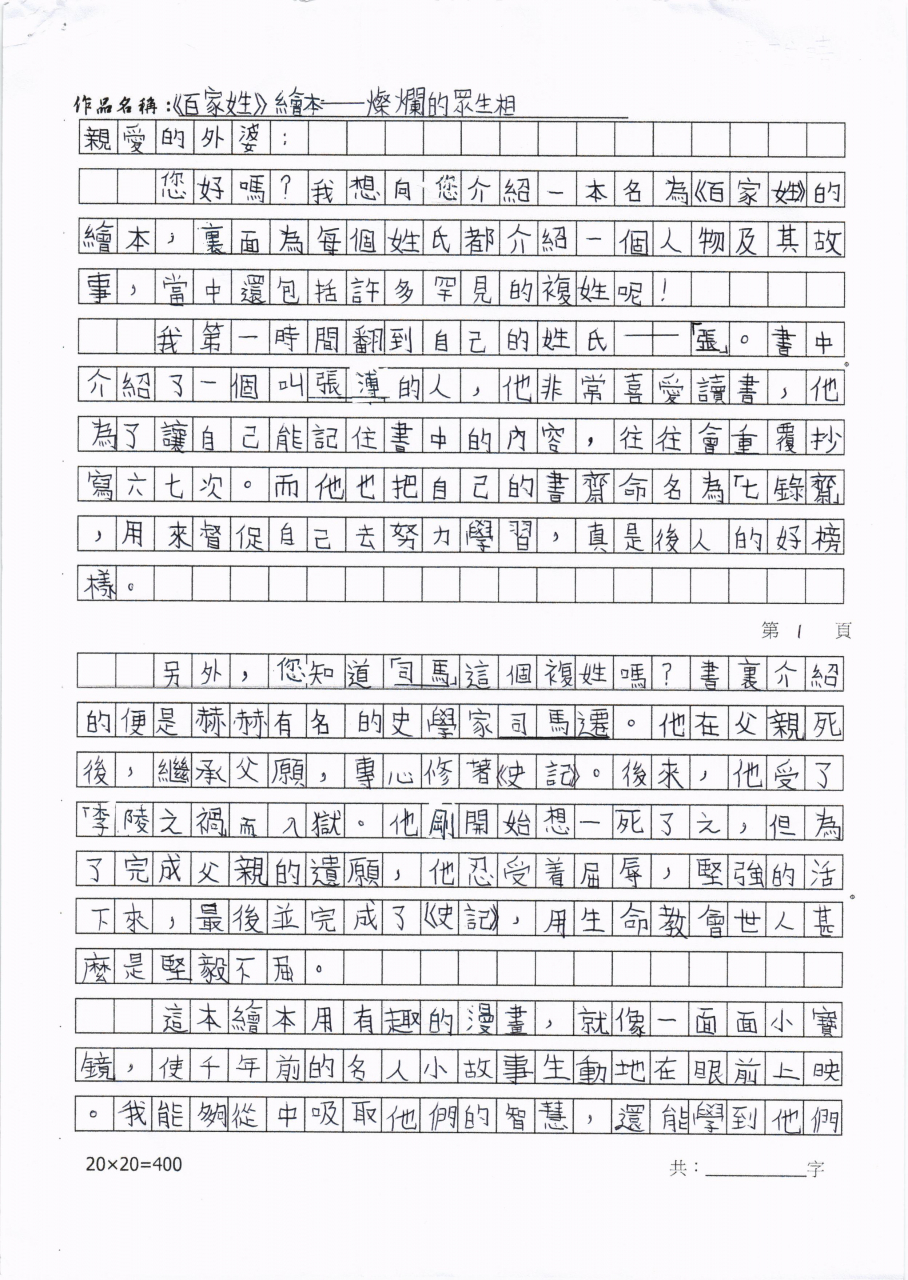 作品名稱：《百家姓》繪本——燦爛的眾生相
親愛的外婆：
您好嗎？我想向您介紹一本名為《百家姓》的
繪本，裏面為每個姓氏都介紹一個人物及其故
事，當中還包括許多罕見的複姓呢！
我第一時間翻到自己的姓氏——「張」。書中
介紹了一個叫張溥的人，他非常喜愛讀書，他
為了讓自己能記住書中的內容，往往會重覆抄
寫六七次。而他也把自己的書齋命名為「七錄齋」
，用來督促自己去努力學習，真是後人的好榜
樣。
第1頁
另外，您知道「司馬」這個複姓嗎？書裏介紹
的便是赫赫有名的史學家司馬遷。他在父親死
後，繼承父願，專心修著《史記》。後來，他受了
「李陵之禍」而入獄。他剛開始想一死了之，但為
了完成父親的遺願，他忍受着屈辱，堅強的活
下來，最後並完成了《史記》，用生命教會世人甚
麼是堅毅不屈。
這本繪本用有趣的漫畫，就像一面面小寶
鏡，使千年前的名人小故事生動地在眼前上映
。我能夠從中吸取他們的智慧，還能學到他們
20×20=400
共：字